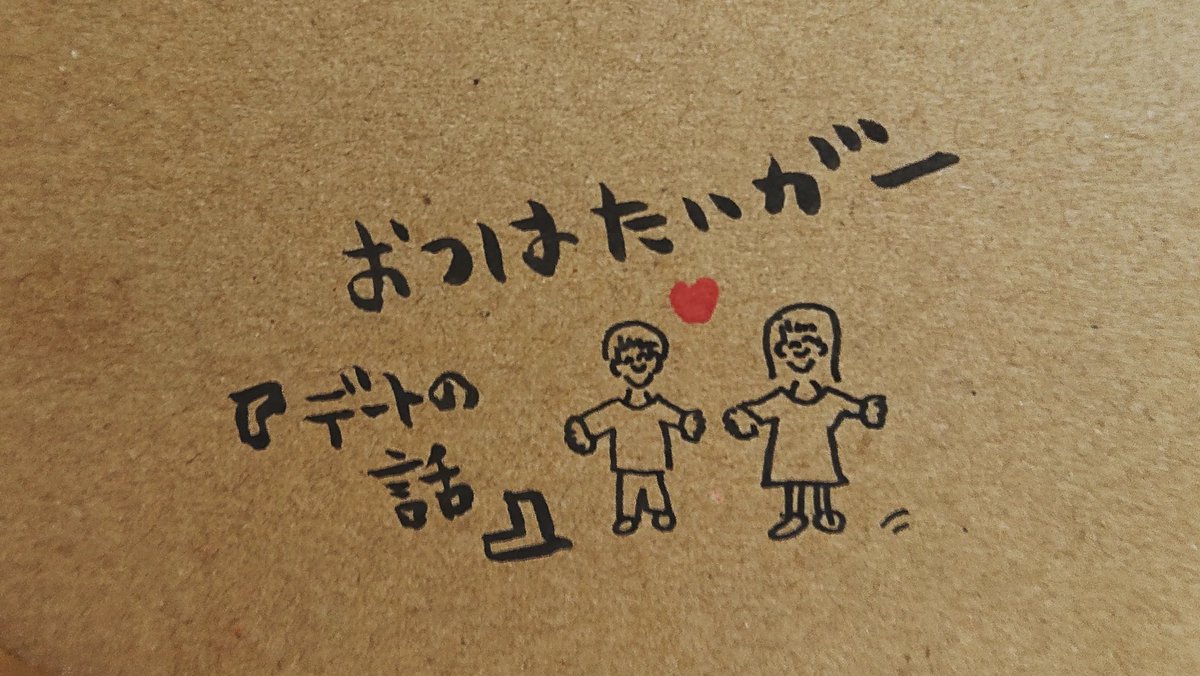 おつはたいがー
『デートの
話』